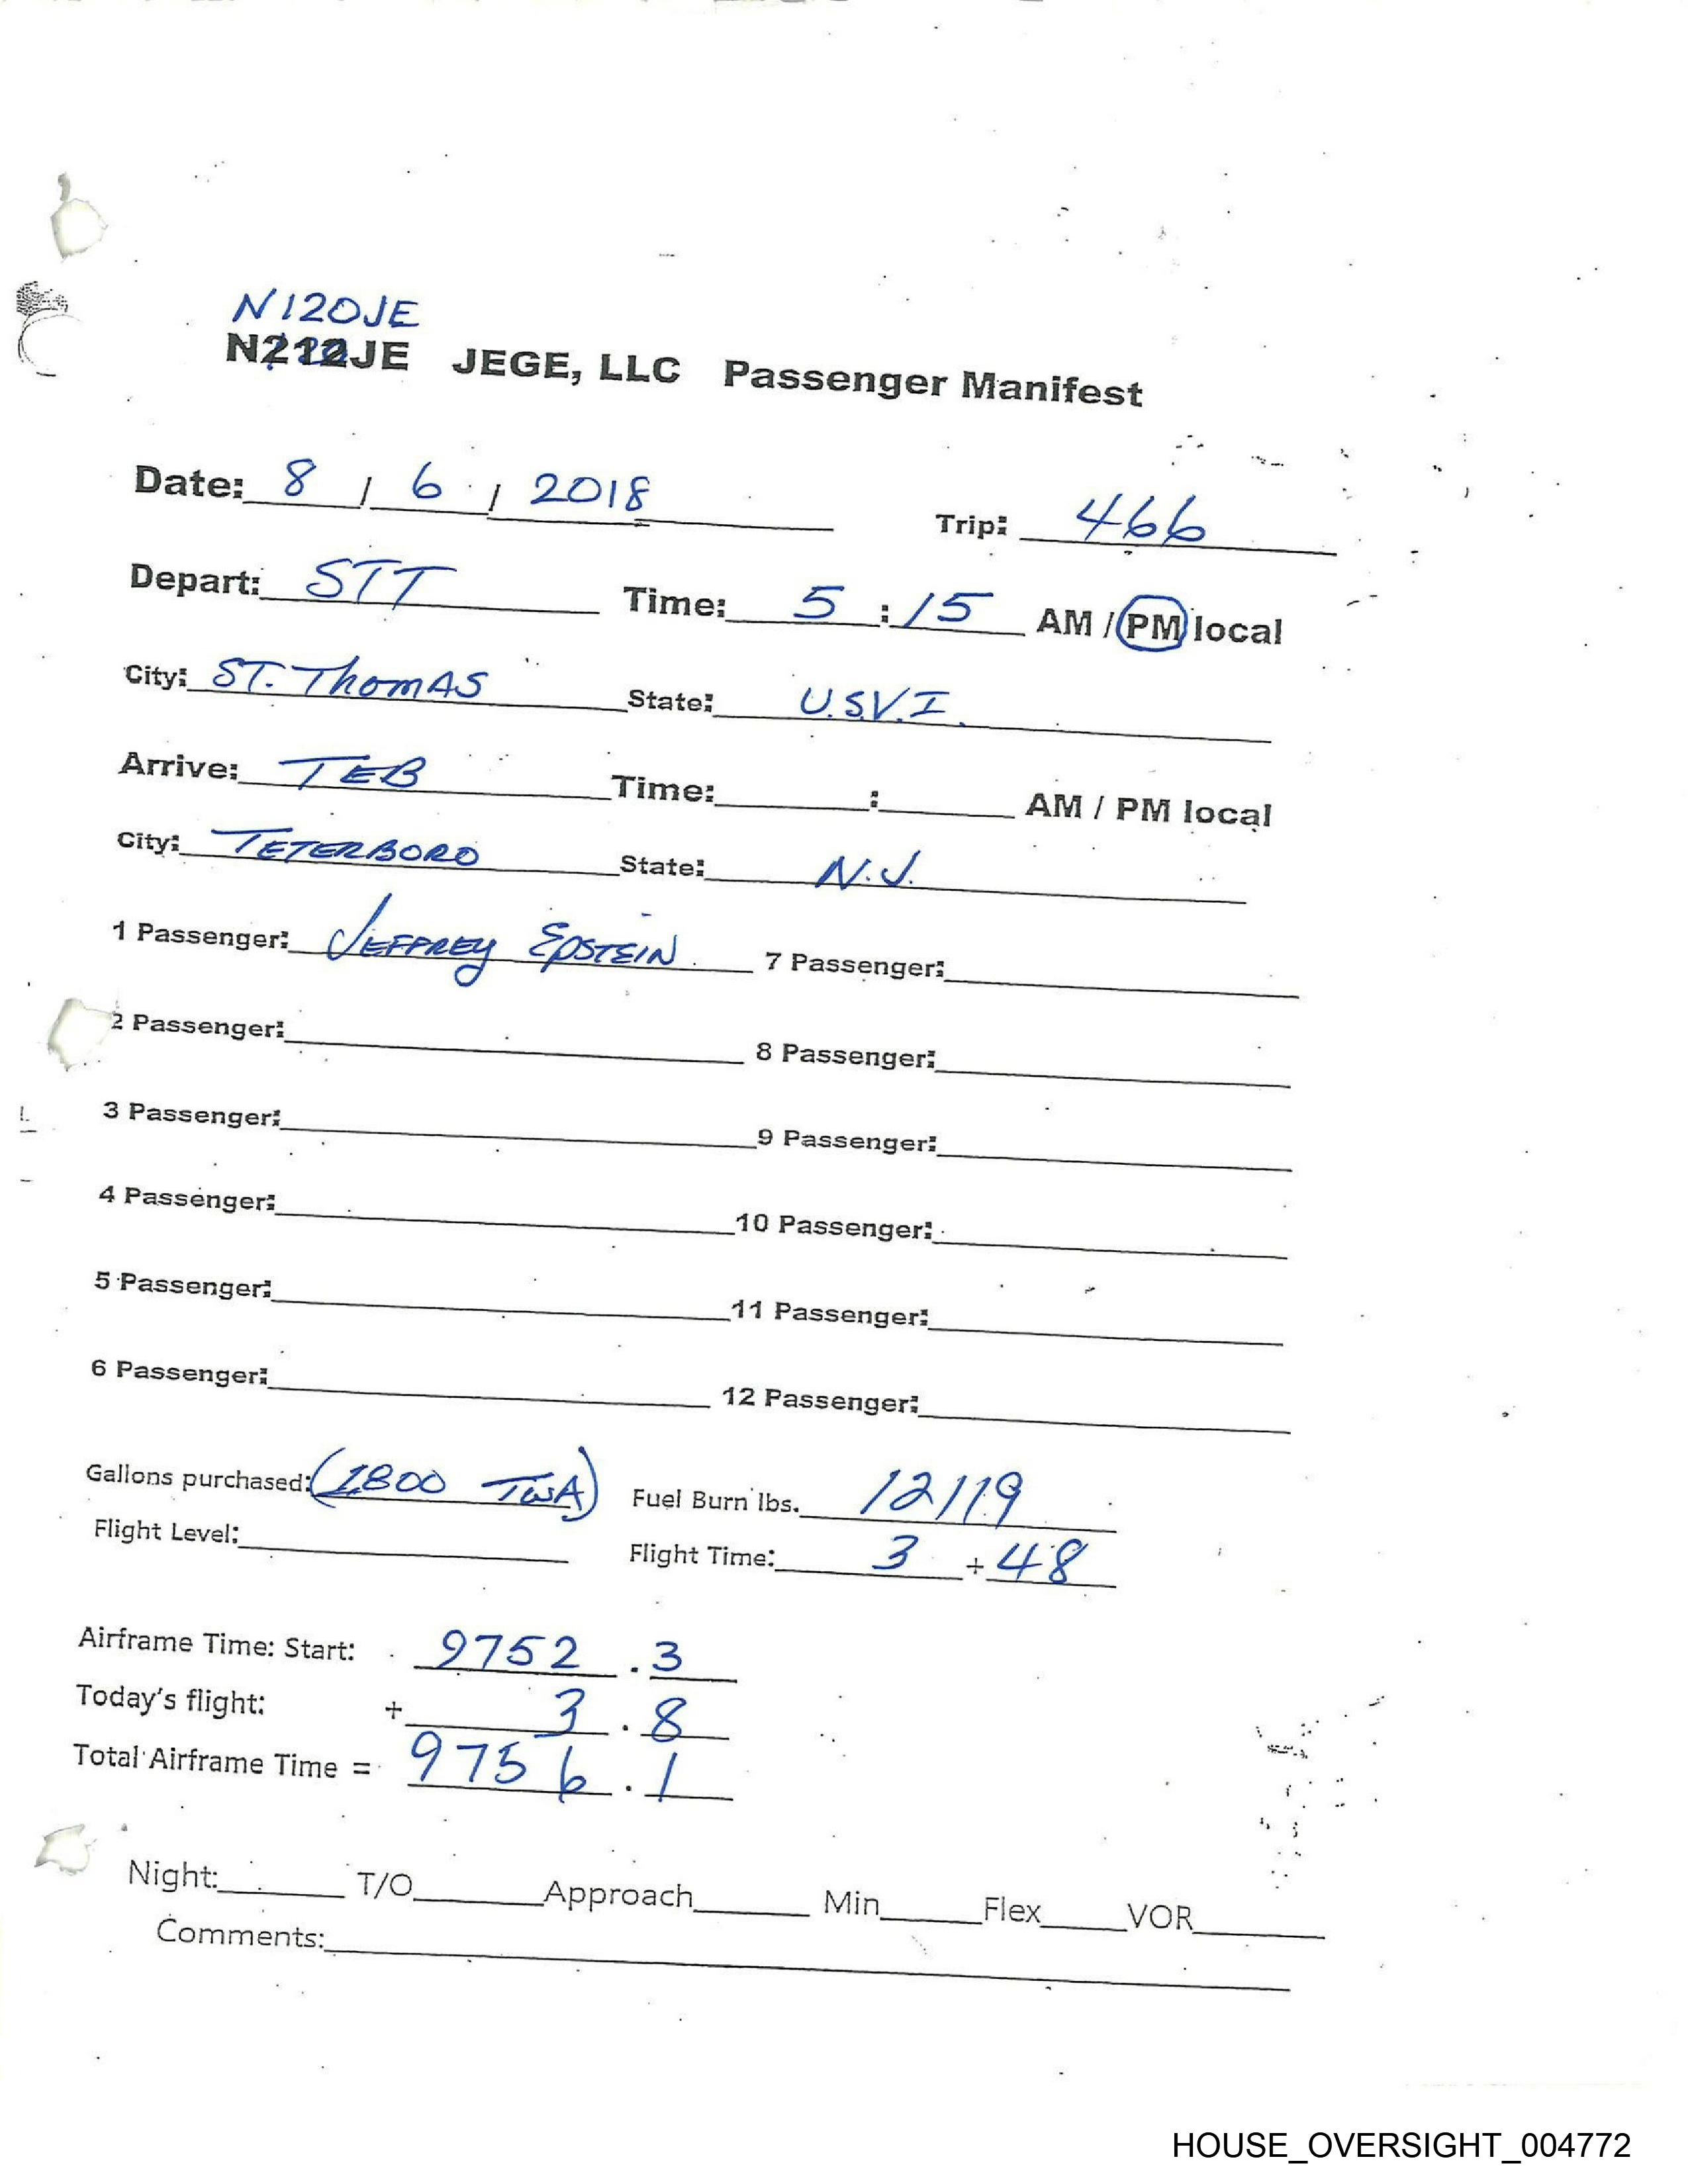 N120JE
N212JE JEGE, LLC Passenger Manifest
Date: 8 / 6 / 2018 Trip: 466
Depart: STT Time: 5 : 15 AM / PM local
City: ST. THOMAS State: U.S.V.I.
Arrive: TEB Time: : AM / PM local
City: TETERBORO State: N.J.
1 Passenger: JEFFREY EPSTEIN 7 Passenger:
2 Passenger: 8 Passenger:
3 Passenger: 9 Passenger:
4 Passenger: 10 Passenger:
5 Passenger: 11 Passenger:
6 Passenger: 12 Passenger:
Gallons purchased: (1800 TWA) Fuel Burn lbs. 12119
Flight Level: Flight Time: 3 + 48
Airframe Time: Start: 9752 . 3
Today's flight: + 3 . 8
Total Airframe Time = 9756 . 1
Night: T/O Approach Min Flex VOR
Comments:
HOUSE_OVERSIGHT_004772